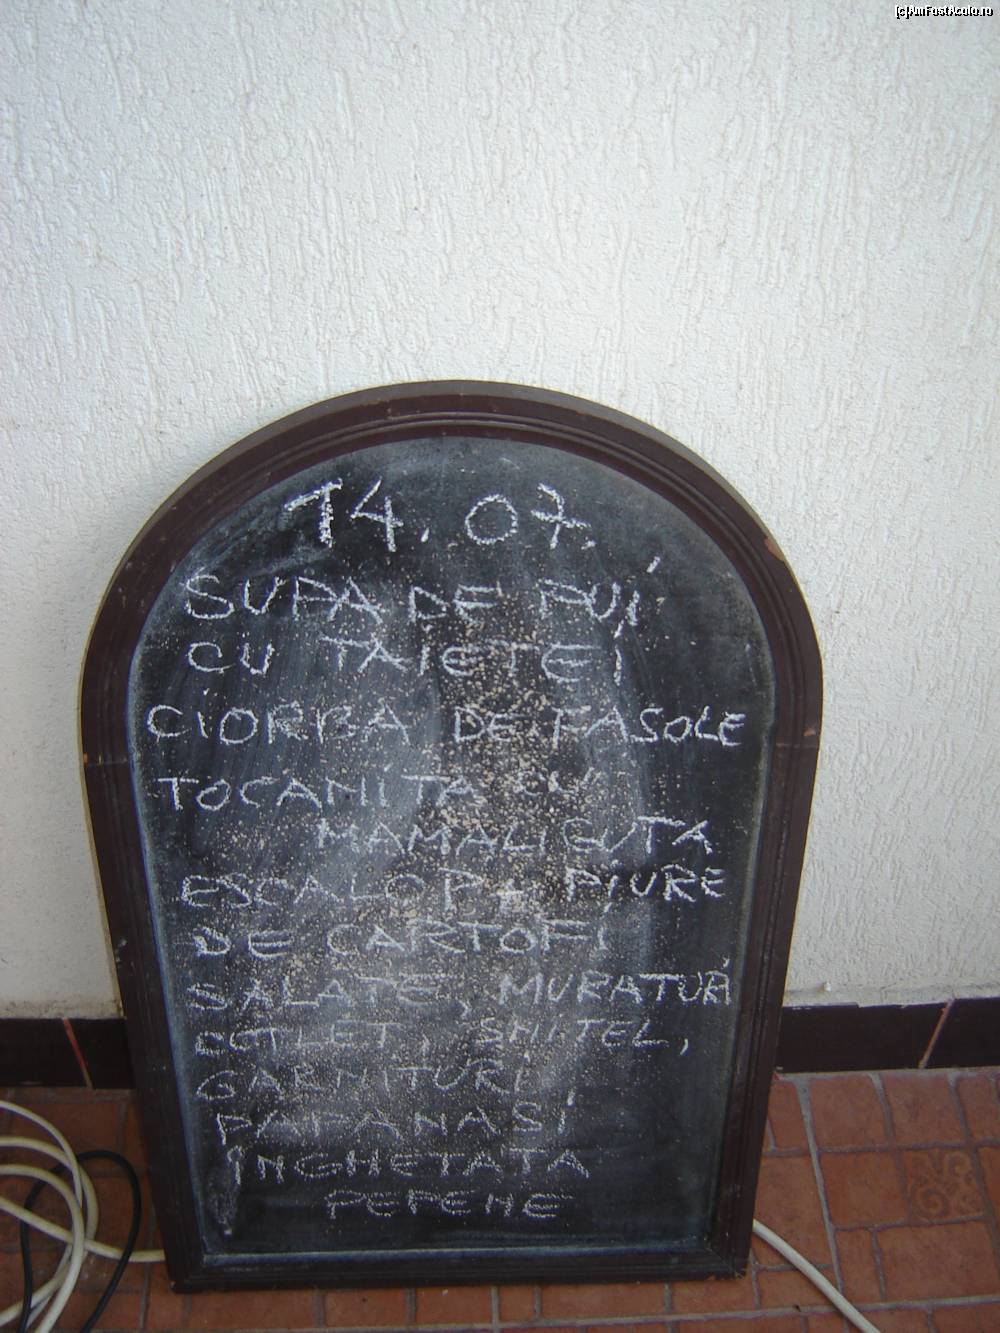 [c]AmFostAcolo.ro
14.07.
SUPA DE PUI
CU TAIETEI
CIORBA DE FASOLE
TOCANITA CU
MAMALIGUTA
ESCALOP + PIURE
DE CARTOFI
SALATE, MURATURI
COTLET, SNITEL,
GARNITURI
PAPANASI
INGHETATA
PEPENE